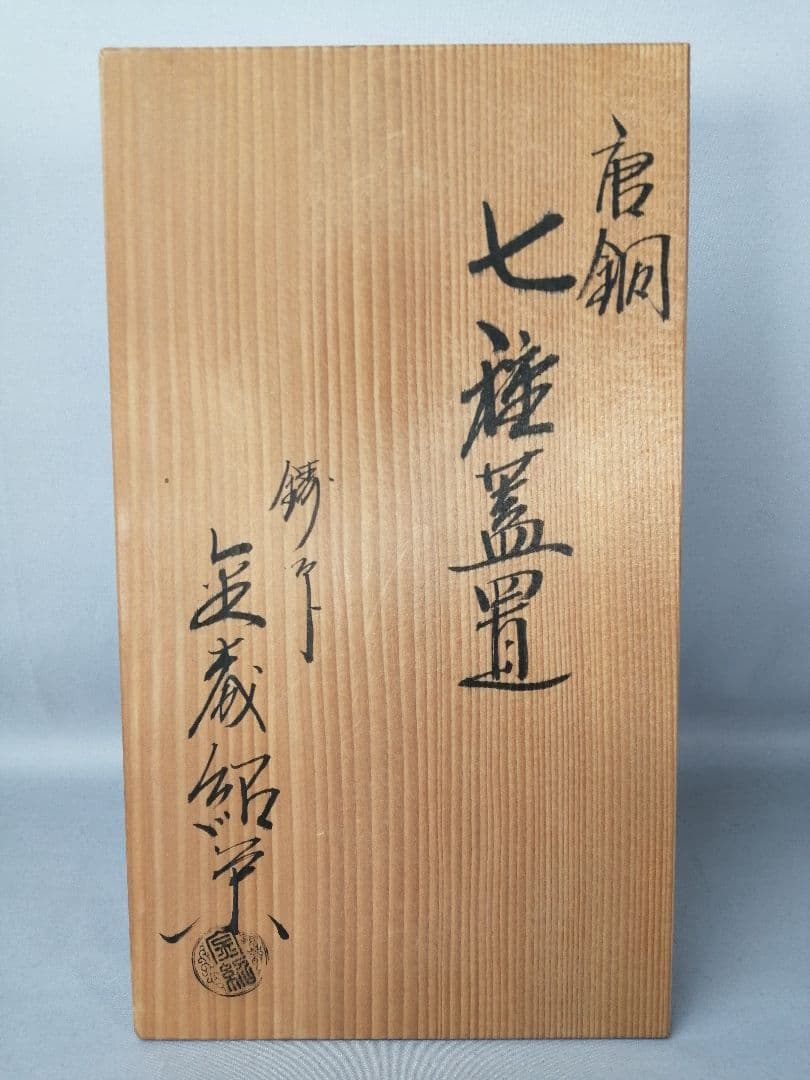 唐銅
七種蓋置
鋳師
金森紹栄